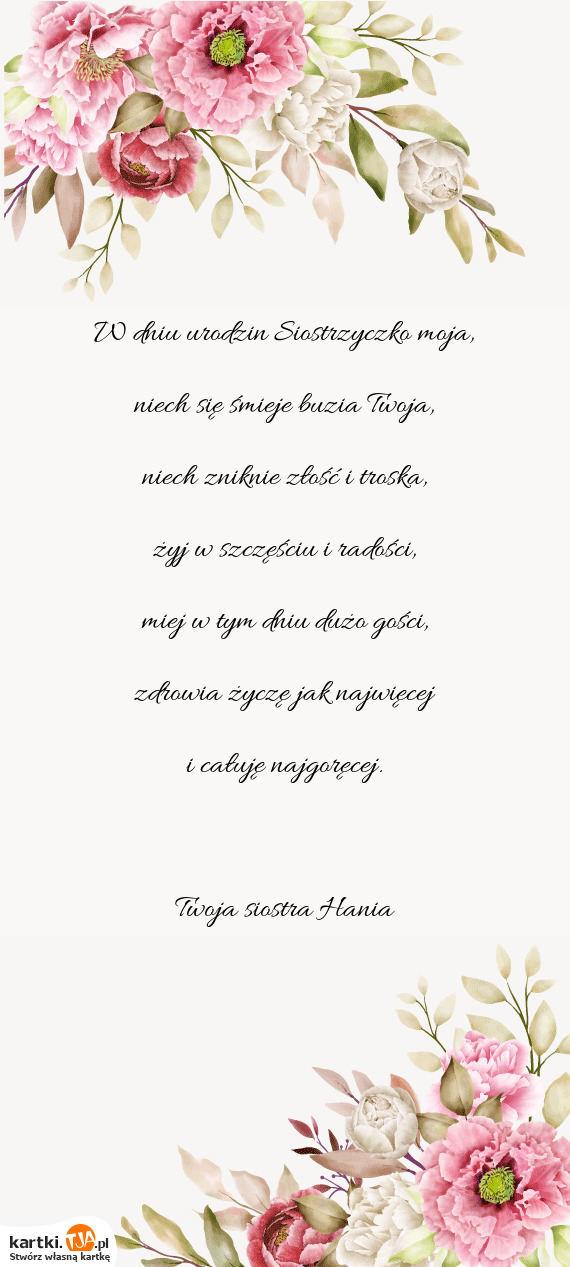 W dniu urodzin Siostrzyczko moja,
niech się śmieje buzia Twoja,
niech zniknie złość i troska,
żyj w szczęściu i radości,
miej w tym dniu dużo gości,
zdrowia życzę jak najwięcej
i całuję najgoręcej.
Twoja siostra Hania
kartki.TJA.pl
Stwórz własną kartkę